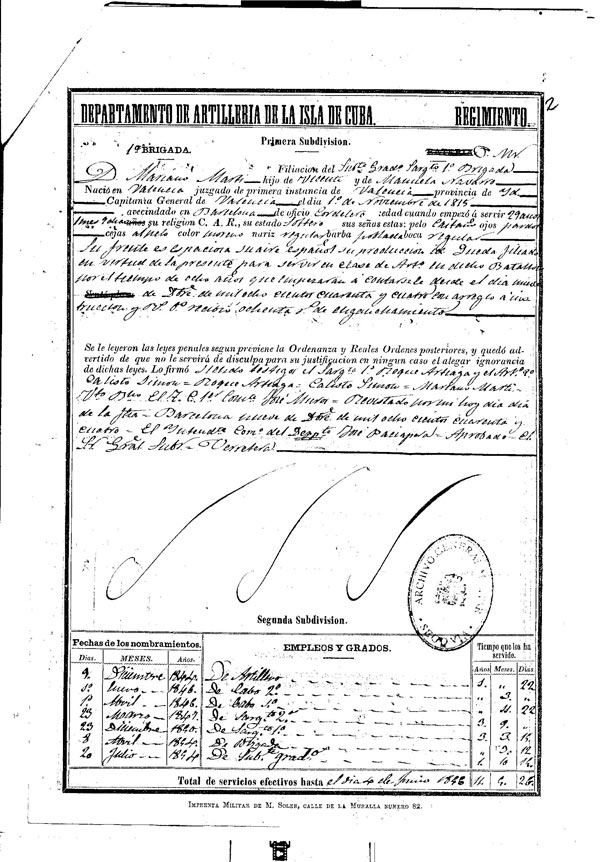 2
DEPARTAMENTO DE ARTILLERIA DE LA ISLA DE CUBA. REGIMIENTO.
Primera Subdivision.
1ª BRIGADA. BATERIA
D Mariano Marti Filiacion del Subtᵉ Gradᵒ Sargtᵒ 1ª Brigada
hijo de Vicente y de Manuela Navarro
Nació en Valencia juzgado de primera instancia de Valencia provincia de Id
Capitania General de Valencia el dia 1º de Noviembre de 1815
avecindado en Barcelona de oficio Cordelero edad cuando empezó á servir 29 años
su religion C. A. R., su estado Soltero sus señas estas: pelo Castaño ojos pardos
cejas al pelo color moreno nariz regular barba poblada boca regular
Su frente es espaciosa su aire español su produccion id Queda filiado
en virtud de la presente para servir en clase de Artᵒ en dicho Batallon
por el tiempo de ocho años que empezarán á contarsele desde el dia nueve
de Dbre. de mil ocho cientos cuarenta y cuatro con arreglo a ins
truccion y recibió ochenta de enganchamiento
Se le leyeron las leyes penales segun previene la Ordenanza y Reales Ordenes posteriores, y quedó ad-
vertido de que no le serivirá de disculpa para su justificacion en ningun caso el alegar ignorancia
de dichas leyes. Lo firmó siendo testigos el Sargtᵒ 1º Roque Arteaga y el Artᵒ 2º
Calisto Simon = Roque Arteaga = Calisto Simon = Mariano Marti =
El José Muros = Revistado por mi hoy dia
de la fha = Barcelona nueve de Dbre. de mil ocho cientos cuarenta y
cuatro = El del José = Aprobado = El
Gral Subr. =
ARCHIVO GENERAL MILITAR
Segunda Subdivision.
Fechas de los nombramientos. EMPLEOS Y GRADOS. Tiempo que los ha servido.
Dias. MESES. Años. Años. Meses. Dias
9. Diciembre 1844. De Artillero 1. " 22
1º Enero 1846. De Cabo 2º " 3. "
1º Abril 1846. De Cabo 1º " 11. 22
23 Marzo 1847. De Sargtᵒ 2º 3. 9. "
23 Diciembre 1850. De Sargtᵒ 1º 3. 3.
Abril 1854. De Brigada " 3. 12
20 Julio 1854 De Subtᵉ gradᵒ 1. 10
Total de servicios efectivos hasta el dia 4 de Junio 1856 11.
IMPRENTA MILITAR DE M. SOLER, CALLE DE LA MURALLA NUMERO 82.